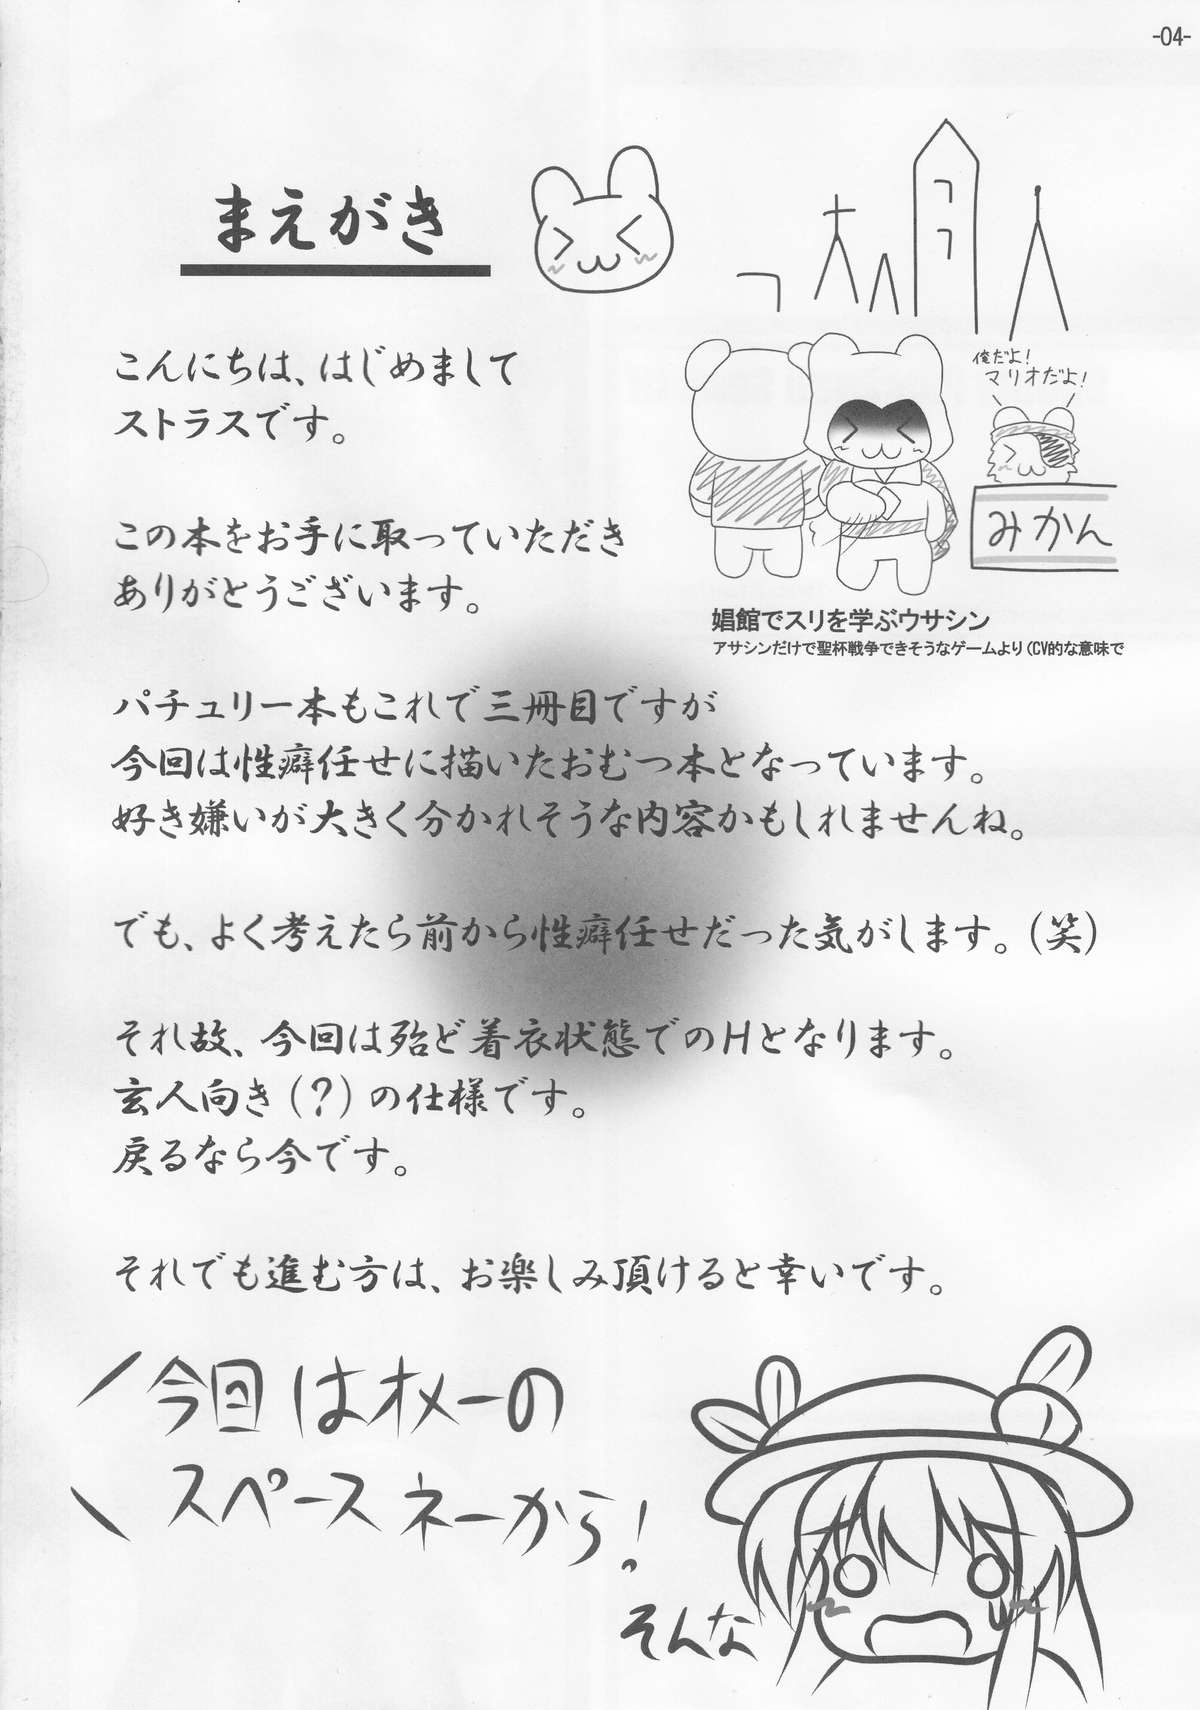 -04-
まえがき
こんにちは、はじめまして
ストラスです。
俺だよ!
マリオだよ!
みかん
娼館でスリを学ぶウサシン
アサシンだけで聖杯戦争できそうなゲームより(CV的な意味で
この本をお手に取っていただき
ありがとうございます。
パチュリー本もこれで三冊目ですが
今回は性癖任せに描いたおむつ本となっています。
好き嫌いが大きく分かれそうな内容かもしれませんね。
でも、よく考えたら前から性癖任せだった気がします。(笑)
それ故、今回は殆ど着衣状態でのHとなります。
玄人向き(?)の仕様です。
戻るなら今です。
それでも進む方は、お楽しみ頂けると幸いです。
今回はオメーの
スペースネーから!
そんな